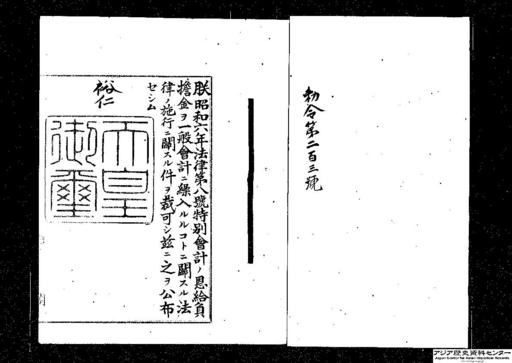 勅令第二百三號
朕昭和六年法律第八號特別會計ノ恩給負
擔金ヲ一般會計ニ繰入ルルコトニ關スル法
律ノ施行ニ關スル件ヲ裁可シ茲ニ之ヲ公布
セシム
裕仁
天皇
御璽
アジア歴史資料センター
Japan Center for Asian Historical Records